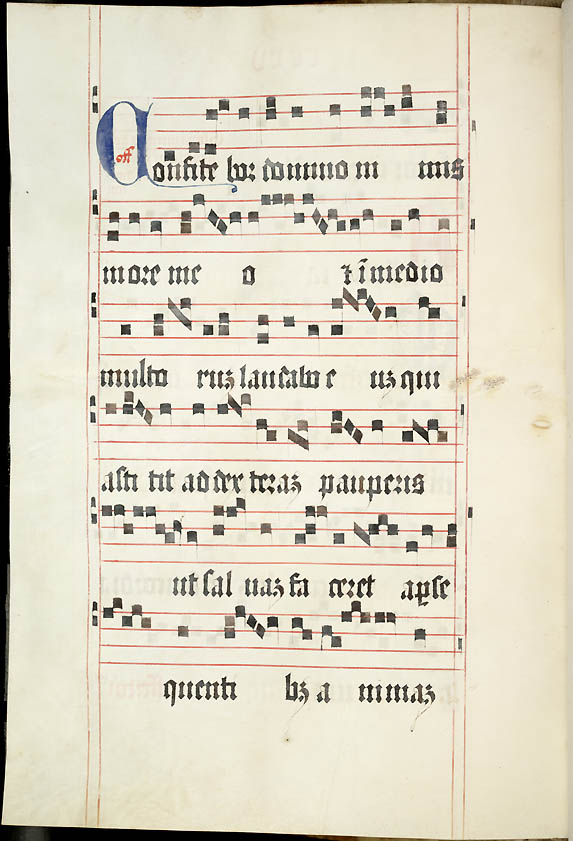 off Confite bor domino nimis
in ore me o & ī medio
multo ruʒ laudabo e uʒ qui
asti tit ad dex teraʒ pauperis
ut sal uaʒ fa ceret a ꝑse
quenti bʒ a nimaʒ